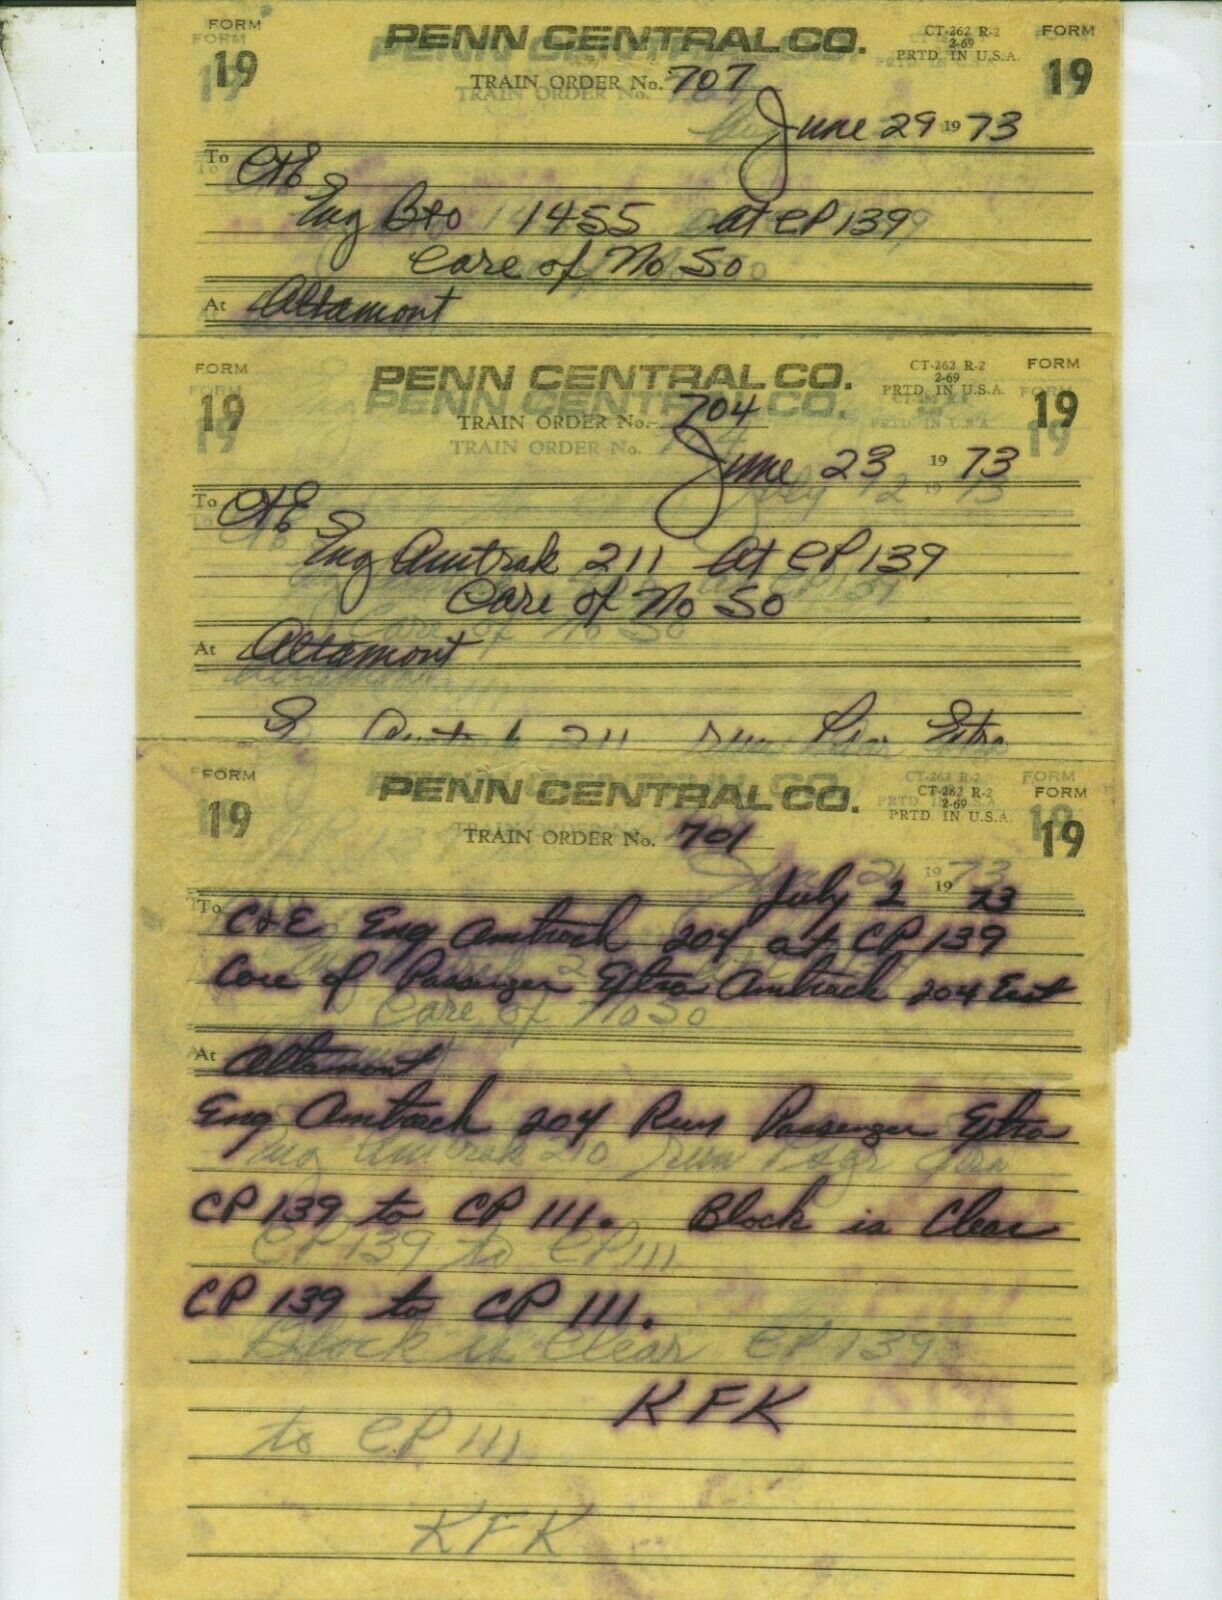 FORM 19
PENN CENTRAL CO.
CT-262 R-2
2-69
PRTD. IN U.S.A.
FORM 19
TRAIN ORDER No. 707
June 29 1973
To C+E
Eng B+O 1455 at CP 139
Care of No So
At Altamont
FORM 19
PENN CENTRAL CO.
CT-262 R-2
2-69
PRTD. IN U.S.A.
FORM 19
TRAIN ORDER No. 704
June 23 1973
To C+E
Eng Amtrak 211 At CP 139
Care of No So
At Altamont
Amtrak 211 run Extra
FORM 19
PENN CENTRAL CO.
CT-262 R-2
2-69
PRTD. IN U.S.A.
FORM 19
TRAIN ORDER No. 701
July 2 1973
To C+E Eng Amtrack 204 at CP 139
Care of Passenger Extra Amtrack 204 East
At Altamont
Eng Amtrack 204 Run Passenger Extra
Eng Amtrak 210 run Psgr Extra
CP 139 to CP 111. Block is Clear
CP 139 to CP 111
CP 139 to CP 111.
Block is Clear CP 139
KFK
to CP 111
KFK